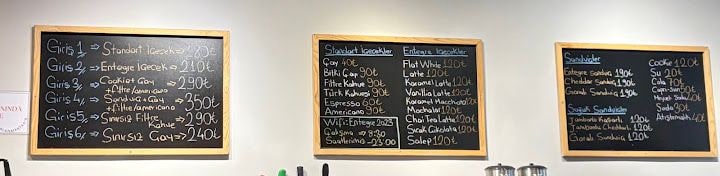 Giriş 1 ⇒ Standart İçecek ⇒ 180₺
Giriş 2 ⇒ Entegre İçecek ⇒ 210₺
Giriş 3 ⇒ Cookie + Çay + filtre/americano ⇒ 290₺
Giriş 4 ⇒ Sandviç + Çay + filtre/americano ⇒ 350₺
Giriş 5 ⇒ Sınırsız Filtre Kahve ⇒ 290₺
Giriş 6 ⇒ Sınırsız Çay ⇒ 240₺
Standart İçecekler
Çay 40₺
Bitki Çayı 90₺
Filtre Kahve 90₺
Türk Kahvesi 90₺
Espresso 60₺
Americano 90₺
Wifi: Entegre2023
Çalışma → 8:30
Saatlerimiz → 23:00
Entegre İçecekler
Flat White 120₺
Latte 120₺
Karamel Latte 120₺
Vanilla Latte 120₺
Karamel Macchiato 120₺
Mocha 120₺
Chai Tea Latte 120₺
Sıcak Çikolata 120₺
Salep 120₺
Sandviçler
Entegre Sandviç 190₺
Cheddar Sandviç 190₺
Garalı Sandviç 190₺
Soğuk Sandviçler
Jambonlu Kaşarlı 120₺
Jambonlu Cheddarlı 120₺
Garalı Sandviç 120₺
Cookie 120₺
Su 20₺
Cola 70₺
Meyveli Soda 40₺
Soda 30₺
Atıştırmalık 40₺